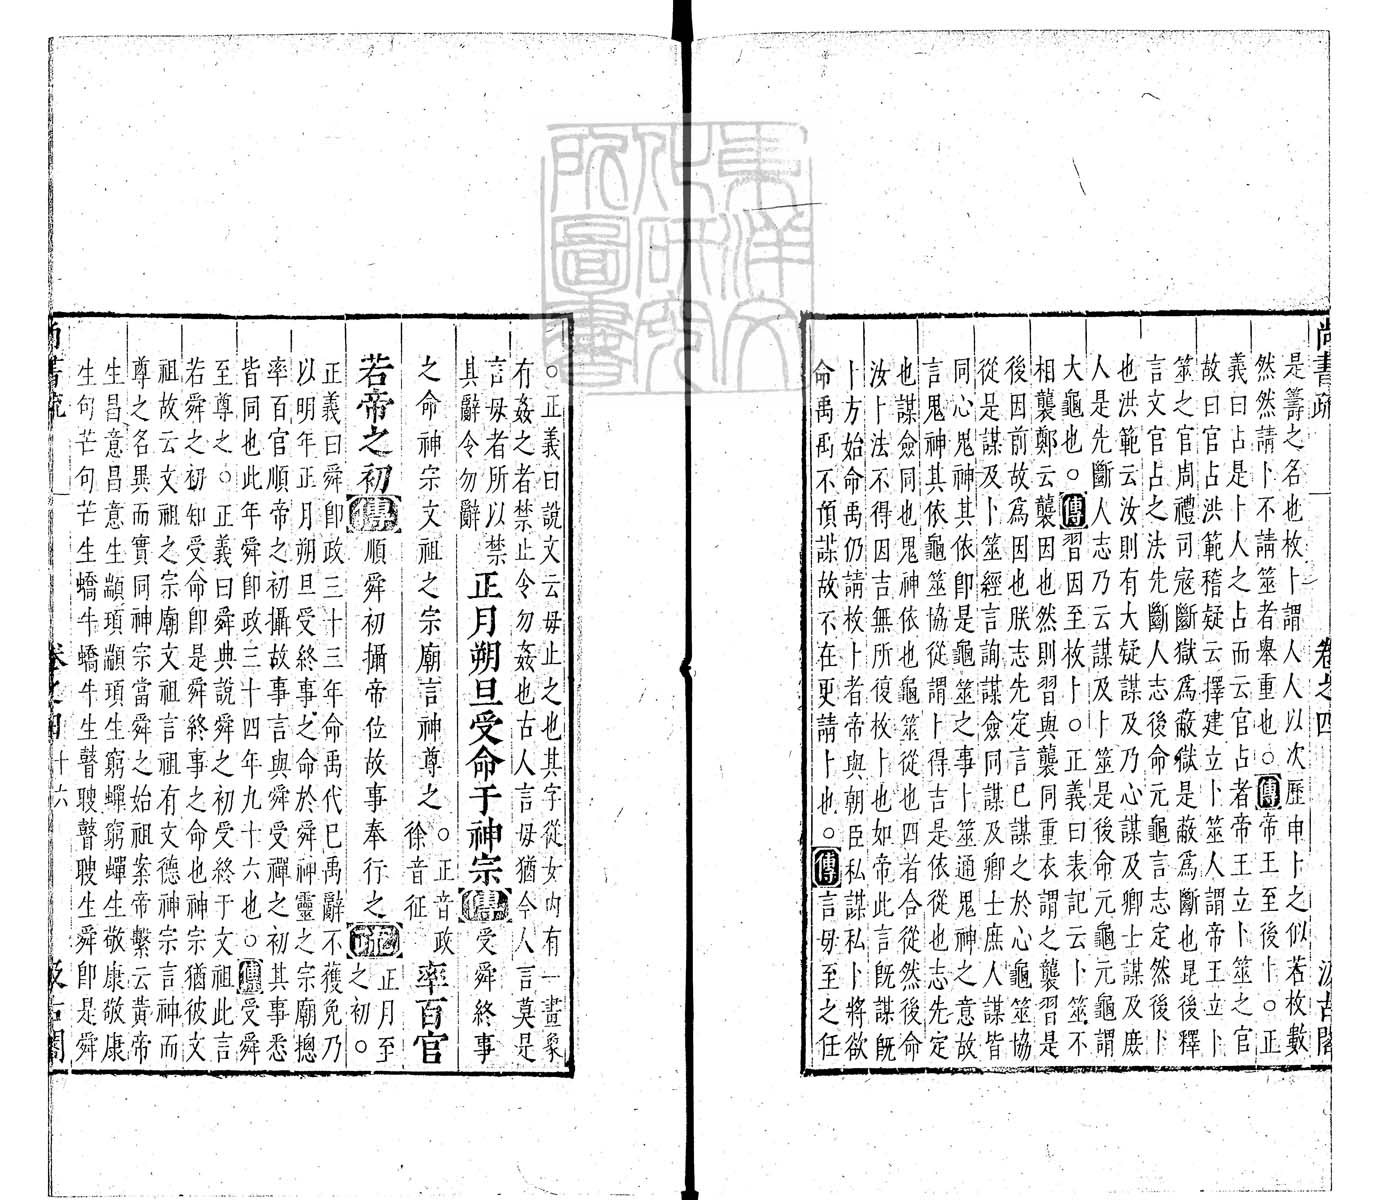 尚書疏 卷之四 汲古閣
是籌之名也枚卜謂人人以次歷申卜之似若枚數
然然請卜不請筮者舉重也○傳帝王至後卜○正
義曰占是卜人之占而云官占者帝王立卜筮之官
故曰官占洪範稽疑云擇建立卜筮人謂帝王立卜
筮之官周禮司寇斷獄爲蔽獄是蔽爲斷也昆後釋
言文官占之法先斷人志後命元龜言志定然後卜
也洪範云汝則有大疑謀及乃心謀及卿士謀及庶
人是先斷人志乃云謀及卜筮是後命元龜元龜謂
大龜也○傳習因至枚卜○正義曰表記云卜筮不
相襲鄭云襲因也然則習與襲同重衣謂之襲習是
後因前故爲因也朕志先定言已謀之於心龜筮協
從是謀及卜筮經言詢謀僉同謀及卿士庶人謀皆
同心鬼神其依卽是龜筮之事卜筮通鬼神之意故
言鬼神其依龜筮協從謂卜得吉是依從也志先定
也謀僉同也鬼神依也龜筮從也四者合從然後命
汝卜法不得因吉無所復枚卜也如帝此言旣謀旣
卜方始命禹仍請枚卜者帝與朝臣私謀私卜將欲
命禹禹不預謀故不在更請卜也○傳言毋至之任
○正義曰說文云毋止之也其字從女內有一畫象
有姦之者禁止令勿姦也古人言毋猶今人言莫是
言毋者所以禁
其辭令勿辭
正月朔旦受命于神宗傳受舜終事
之命神宗文祖之宗廟言神尊之○正音政
徐音征
率百官
若帝之初傳順舜初攝帝位故事奉行之疏正月至
之初○
正義曰舜卽政三十三年命禹代已禹辭不獲免乃
以明年正月朔旦受終事之命於舜神靈之宗廟摠
率百官順帝之初攝故事言與舜受禪之初其事悉
皆同也此年舜卽政三十四年九十六也○傳受舜
至尊之○正義曰舜典說舜之初受終于文祖此言
若舜之初知受命卽是舜終事之命也神宗猶彼文
祖故云文祖之宗廟文祖言祖有文德神宗言神而
尊之名異而實同神宗當舜之始祖案帝繫云黃帝
生昌意昌意生顓頊顓頊生窮蟬窮蟬生敬康敬康
生句芒句芒生蟜牛蟜牛生瞽瞍瞽瞍生舜卽是舜
尚書疏 卷之四 十六 汲古閣
東洋文
化研究
所圖書